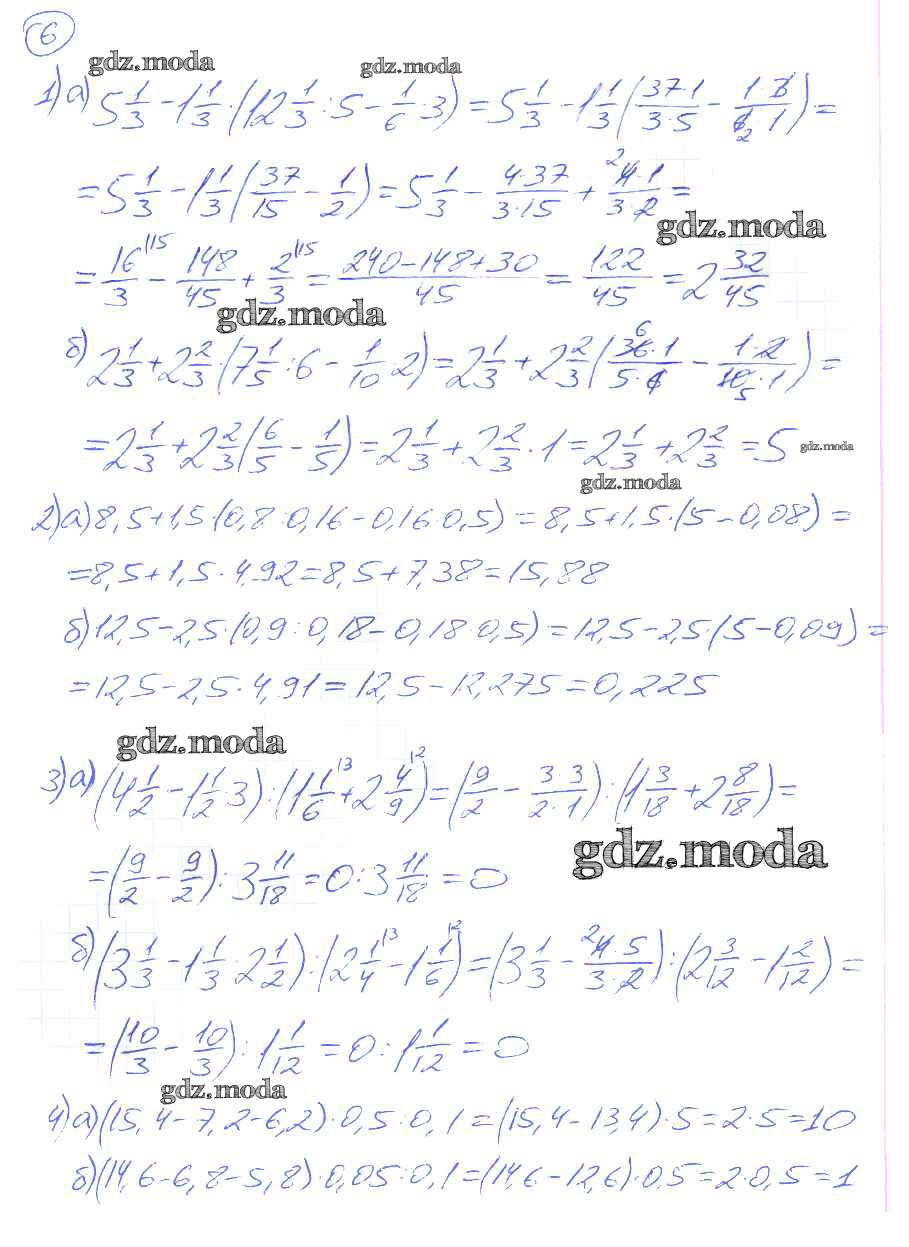 6
gdz.moda gdz.moda
1) а) 5 1/3 − 1 1/3 · (12 1/3 : 5 − 1/6 · 3) = 5 1/3 − 1 1/3 (37·1/3·5 − 1·3/6·1) =
2
= 5 1/3 − 1 1/3 (37/15 − 1/2) = 5 1/3 − 4·37/3·15 + 4·1/3·2 =
2
gdz.moda
= 16/3 − 148/45 + 2/3 = 240−148+30/45 = 122/45 = 2 32/45
15 15
gdz.moda
б) 2 1/3 + 2 2/3 · (7 1/5 : 6 − 1/10 · 2) = 2 1/3 + 2 2/3 (36·1/5·6 − 1·2/10·1) =
6 5
= 2 1/3 + 2 2/3 (6/5 − 1/5) = 2 1/3 + 2 2/3 · 1 = 2 1/3 + 2 2/3 = 5 gdz.moda
gdz.moda
2) а) 8,5+1,5·(0,8·0,16−0,16·0,5) = 8,5+1,5·(5−0,08) =
=8,5+1,5·4,92=8,5+7,38=15,88
б) 12,5−2,5·(0,9:0,18−0,18·0,5)=12,5−2,5·(5−0,09)=
=12,5−2,5·4,91=12,5−12,275=0,225
gdz.moda
3) а) (4 1/2 − 1 1/2 · 3) : (1 1/6 + 2 4/9) = (9/2 − 3·3/2·1) : (1 3/18 + 2 8/18) =
3 2
gdz.moda
= (9/2 − 9/2) : 3 11/18 = 0 : 3 11/18 = 0
б) (3 1/3 − 1 1/3 · 2 1/2) : (2 1/4 − 1 1/6) = (3 1/3 − 4·5/3·2) : (2 3/12 − 1 2/12) =
3 2 2
= (10/3 − 10/3) : 1 1/12 = 0 : 1 1/12 = 0
gdz.moda
4) а) (15,4−7,2−6,2)·0,5·0,1=(15,4−13,4)·5=2·5=10
б) (14,6−6,8−5,8)·0,05·0,1=(14,6−12,6)·0,5=2·0,5=1